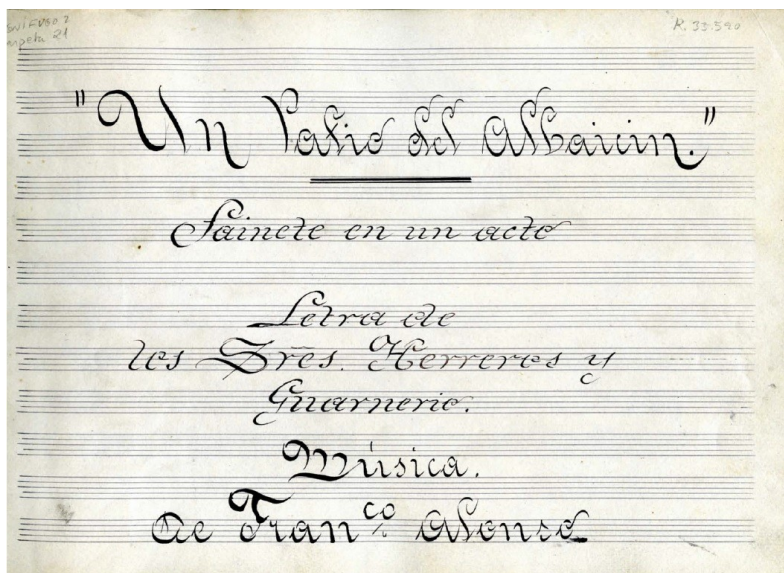 R. 33.590
carpeta 21
"Un Patio del Albaicin."
Sainete en un acto
Letra de
los Sres. Herreros y
Guarnerio.
Música.
De Fran.co Alonso